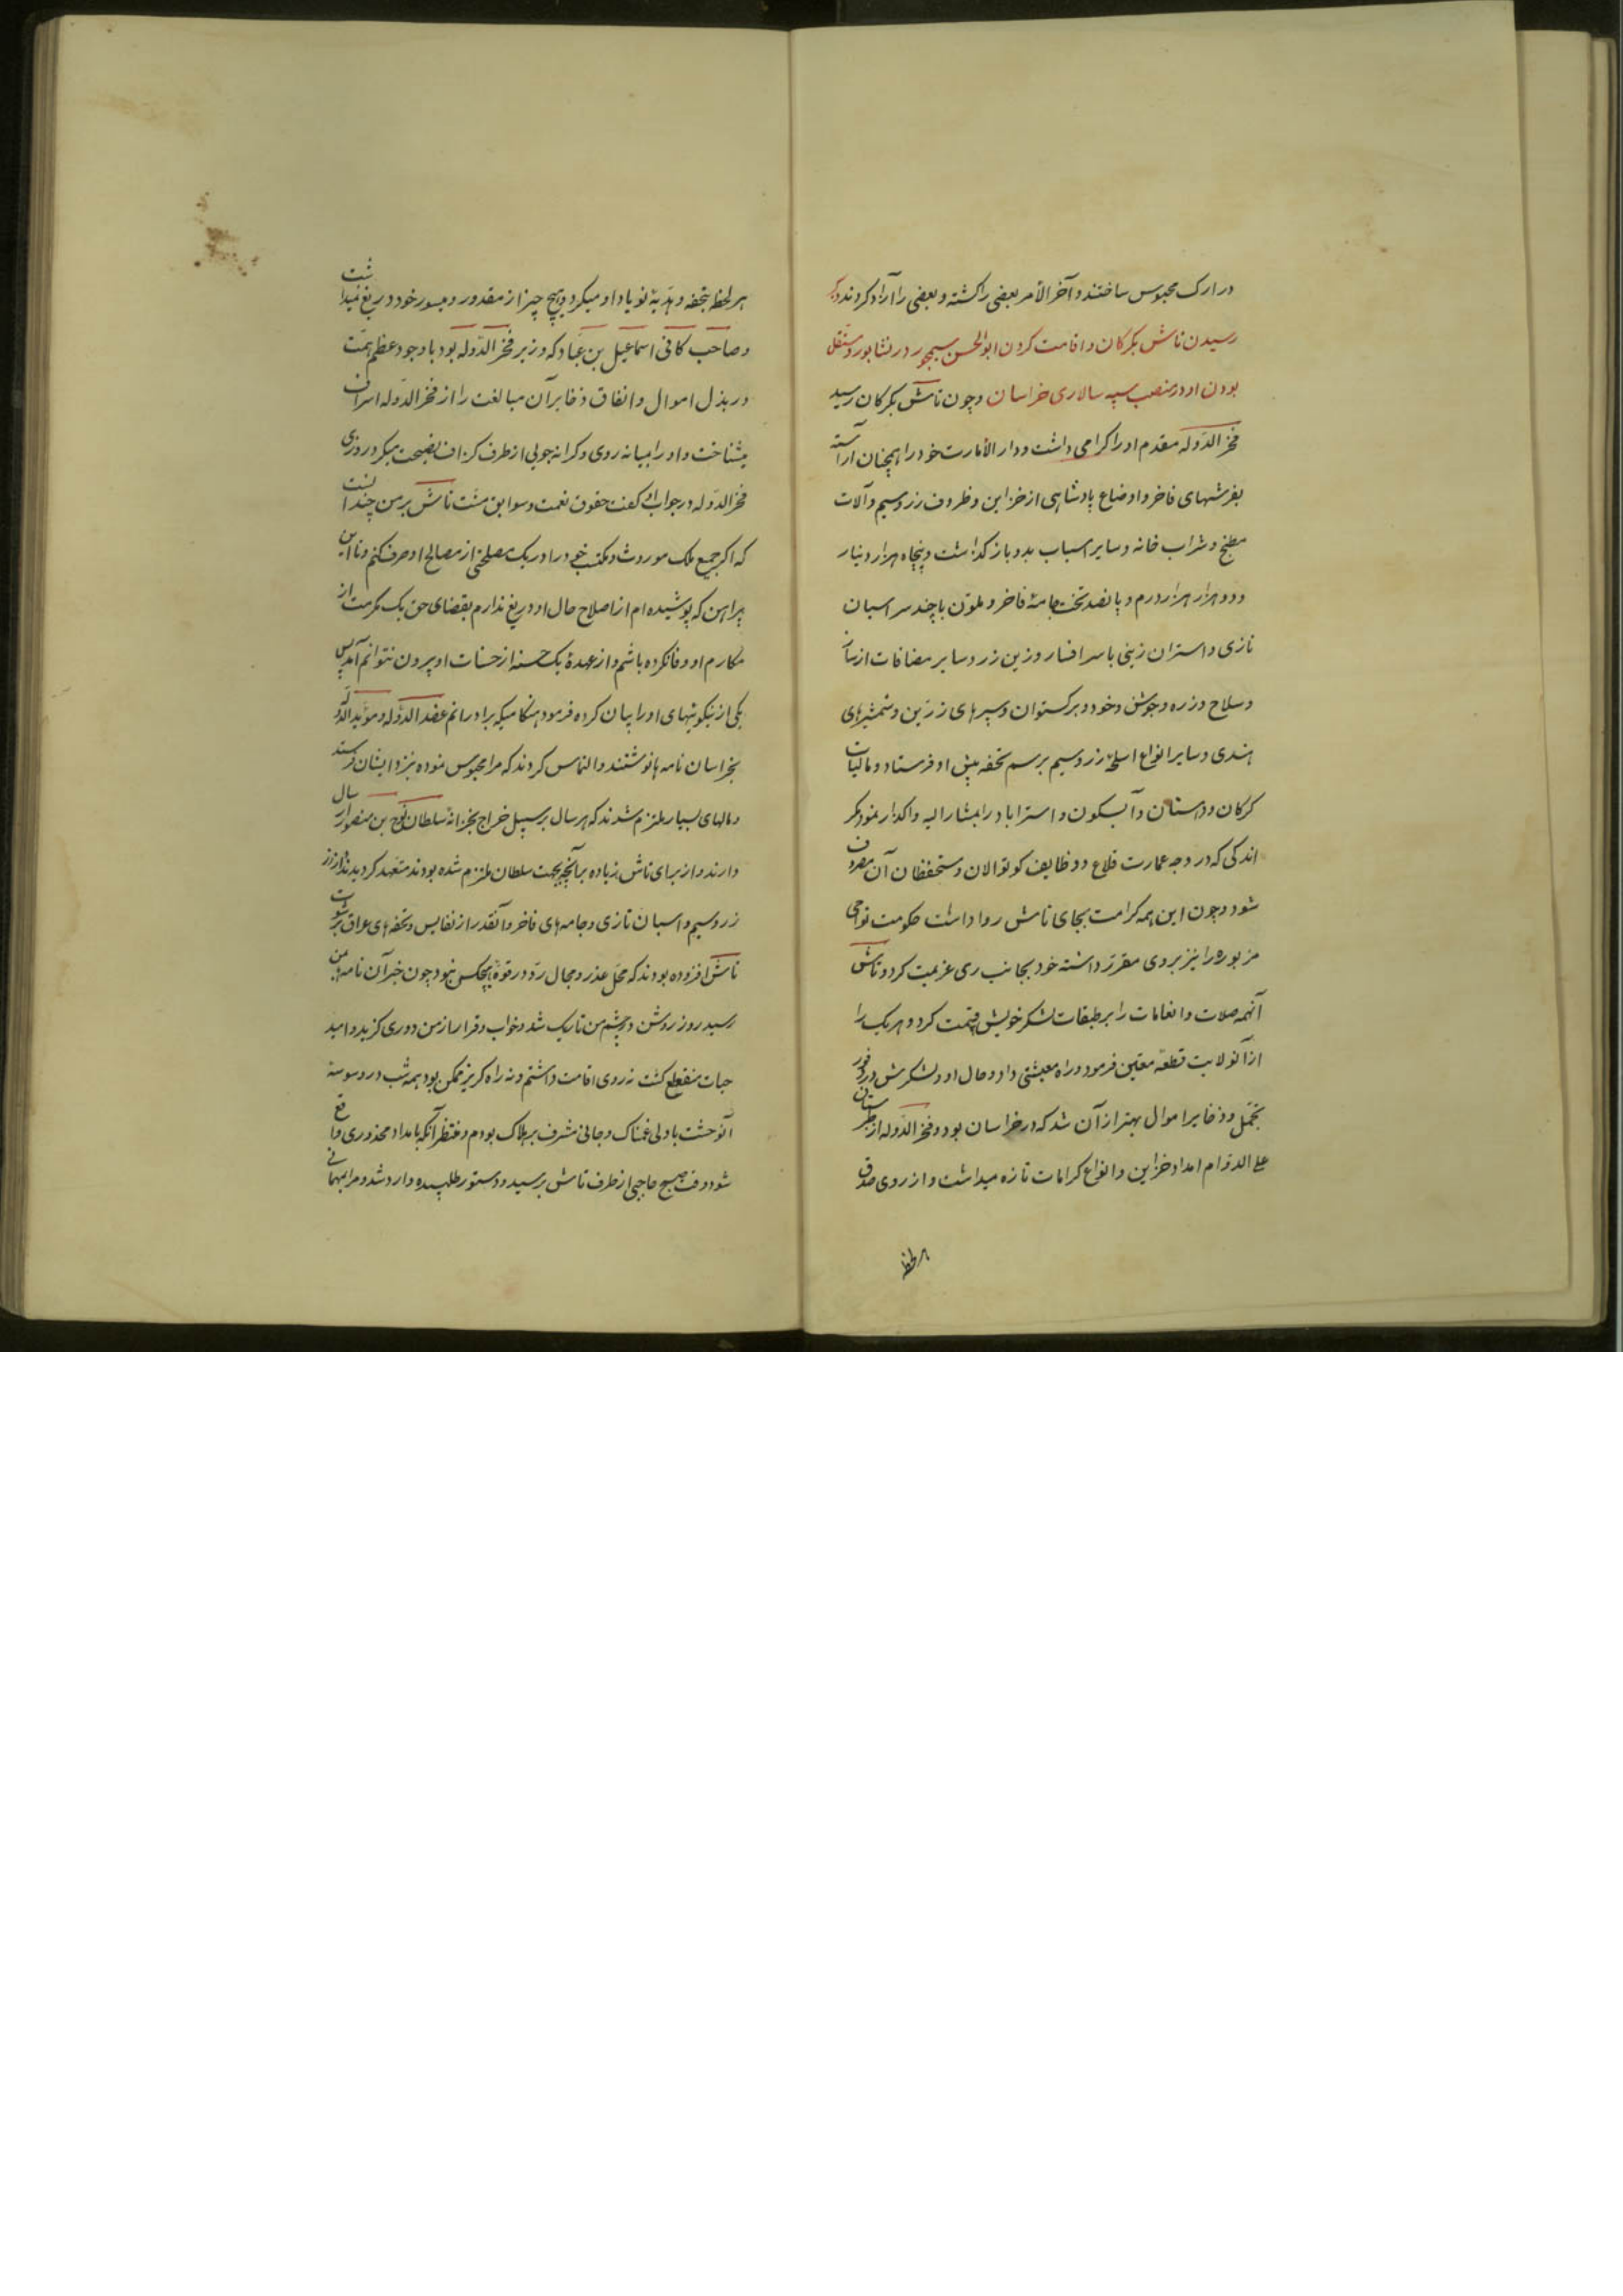 در ارک محبوس ساختند و آخر الأمر بعضی را کشته و بعضی را آزاد کردند ذکر
رسیدن تاش بکرکان و اقامت کردن ابو الحسن سیمجور در نشابور و مستقل
بودن او در منصب سپه سالاری خراسان و چون تاش بکرکان رسید
فخر الدوله مقدم او را کرامی داشت و دار الأمارت خود را همچنان آراسته
بفرشهای فاخر و اوضاع پادشاهی از خزاین و ظروف زر و سیم و آلات
مطبخ و شراب خانه و سایر اسباب بدو باز کذاشت و پنجاه هزار دینار
و دو هزار هزار درم و پانصد تخت جامهٔ فاخر و ملوّن با چند سر اسبان
تازی و استران زینی با سر افسار و زین زر و سایر مضافات از ساز
و سلاح و زره و جوشن و خود و برکستوان و سپرهای زرّین و شمشیرهای
هندی و سایر انواع اسلحهٔ زر و سیم برسم تحفه پیش او فرستاد و مالیات
کرکان و دهستان و آبسکون و استراباد را بمشار الیه واکذار نمود مکر
اندکی که در وجه عمارت قلاع و وظایف کوتوالان و مستحفظان آن مصروف
شود و چون این همه کرامت بجای تاش روا داشت حکومت نواحی
مزبوره را نیز بر وی مقرّر داشته خود بجانب ری عزیمت کرد و تاش
آنهمه صلات و انعامات را بر طبقات لشکر خویش قسمت کرد و هر یک را
از آنولایت قطعهٔ معیّن فرمود و راه معیشتی داد و حال او و لشکرش در وفور
تجمّل و ذخایر اموال بهتر از آن شد که در خراسان بود و فخر الدوله از طبرستان
علی الدوام امداد خزاین و انواع کرامات تازه میداشت و از روی صدق
هر لحظه
هر لحظه بتحفه و هدیّهٔ نو یاد او میکرد و هیچ چیز از مقدور و میسور خود دریغ نمیداشت
و صاحب کافی اسماعیل بن عبّاد که وزیر فخر الدوله بود با وجود عظم همّت
در بذل اموال و انفاق ذخایر آن مبالغت را از فخر الدوله اسراف
میشناخت و او را بمیانه روی و کرانه جویی از طرف کزاف نصیحت میکرد روزی
فخر الدوله در جواب او کفت حقوق نعمت و سوابق منّت تاش بر من چندانست
که اکر جمیع ملک موروث و مکتسب خود را در یک مصلحتی از مصالح او صرف کنم و تا این
پیراهن که پوشیده ام از اصلاح حال او دریغ ندارم بقضای حق یک مکرمت از
مکارم او وفا نکرده باشم و از عهدهٔ یک حسنه از حسنات او بیرون نتوانم آمد پس
یکی از نیکوئیهای او را بیان کرده فرمود هنکامیکه برادرانم عضد الدوله و مؤید الدوله
بخراسان نامه ها نوشتند و التماس کردند که مرا محبوس نموده نزد ایشان فرستند
و مالهای بسیار ملتزم شدند که هر سال بر سبیل خراج بخزانهٔ سلطان نوح بن منصور ارسال
دارند و از برای تاش زیاده بر آنچه بجهت سلطان ملتزم شده بودند متعهد کردیدند و از زر
زر و سیم و اسبان تازی و جامه های فاخر و آنقدر از نفایس و تحفه های عراق
تاش افزوده بودند که محل عذر و مجال ردّ در قوّهٔ هیچکس نبود چون خبر آن نامه ها بمن
رسید روز روشن در چشم من تاریک شد و خواب و قرار از من دوری کزید و امید
حیات منقطع کشت نه روی اقامت داشتم و نه راه کریز ممکن بود همه شب در وسوسهٔ
آنوحشت با دلی غمناک و جانی مشرف بر هلاک بودم و منتظر آنکه بامداد محذوری واقع
شود وقت صبح حاجبی از طرف تاش برسید و دستور طلبیده وارد شد و مرا بمهمانی